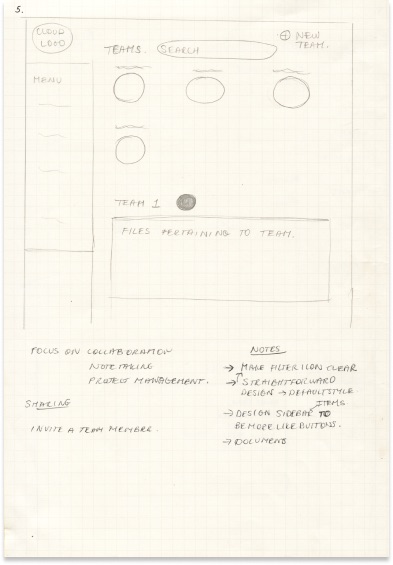 5.
CLOUD
LOGO
TEAMS.
SEARCH
+ NEW
TEAM.
MENU
TEAM 1
FILES PERTAINING TO TEAM.
FOCUS ON COLLABORATION
NOTE TAKING
PROJECT MANAGEMENT.
SHARING
INVITE A TEAM MEMBER.
NOTES
→ MAKE FILTER ICON CLEAR
→ STRAIGHTFORWARD
DESIGN → DEFAULT STYLE
ITEMS
→ DESIGN SIDEBAR TO
BE MORE LIKE BUTTONS.
→ DOCUMENT